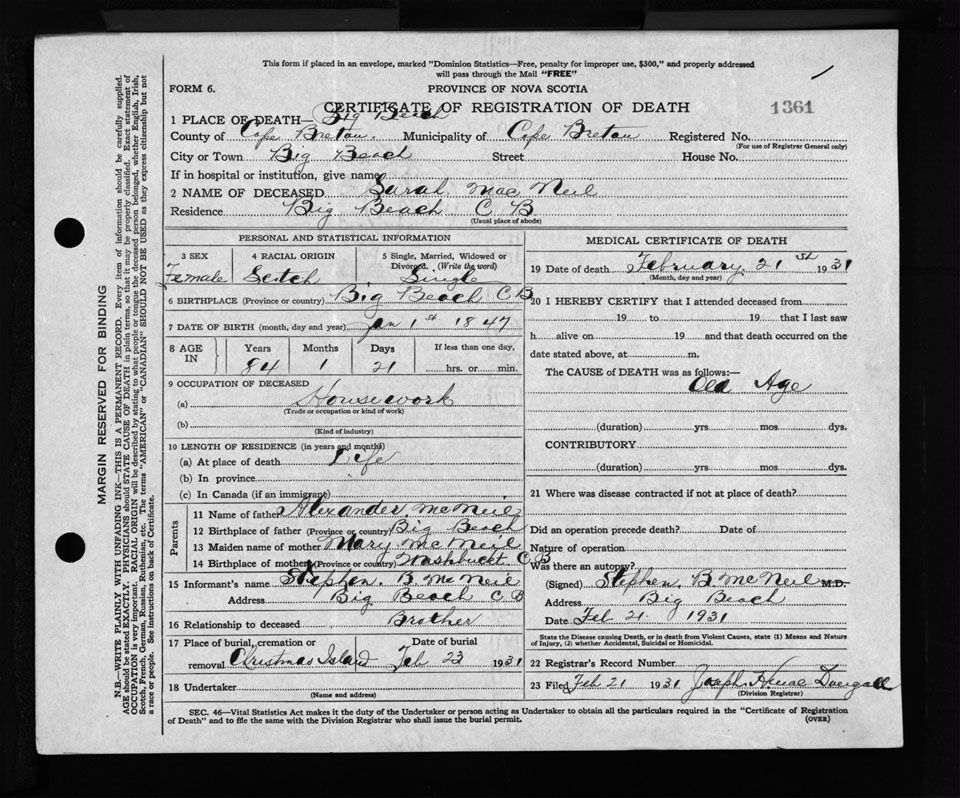 This form if placed in an envelope, marked "Dominion Statistics—Free, penalty for improper use, $300," and properly addressed
will pass through the Mail "FREE"
FORM 6. PROVINCE OF NOVA SCOTIA
CERTIFICATE OF REGISTRATION OF DEATH 1361
1 PLACE OF DEATH— Big Beach
County of Cape Breton. Municipality of Cape Breton Registered No.
(For use of Registrar General only)
City or Town Big Beach Street House No.
If in hospital or institution, give name
2 NAME OF DECEASED Sarah Mac Neil
Residence Big Beach C B
(Usual place of abode)
PERSONAL AND STATISTICAL INFORMATION
3 SEX 4 RACIAL ORIGIN 5 Single, Married, Widowed or
Divorced. (Write the word)
Female Scotch Single
6 BIRTHPLACE (Province or country) Big Beach C B
7 DATE OF BIRTH (month, day and year) Jan 1st 1847
8 AGE IN Years Months Days If less than one day,
84 1 21 hrs. or min.
9 OCCUPATION OF DECEASED
(a) Housework
(Trade or occupation or kind of work)
(b)
(Kind of industry)
10 LENGTH OF RESIDENCE (in years and months)
(a) At place of death Life
(b) In province "
(c) In Canada (if an immigrant)
Parents
11 Name of father Alexander McNeil
12 Birthplace of father (Province or country) Big Beach
13 Maiden name of mother Mary McNeil
14 Birthplace of mother (Province or country) Washbuckt C B
15 Informant's name Stephen. B McNeil
Address Big Beach C B
16 Relationship to deceased Brother
17 Place of burial, cremation or Date of burial
removal Christmas Island Feb 23 1931
18 Undertaker
(Name and address)
MEDICAL CERTIFICATE OF DEATH
19 Date of death February 21st 1931
(Month, day and year)
20 I HEREBY CERTIFY that I attended deceased from
19 to 19 that I last saw
h alive on 19 and that death occurred on the
date stated above, at m.
The CAUSE of DEATH was as follows:—
Old Age
(duration) yrs mos dys.
CONTRIBUTORY
(duration) yrs. mos. dys.
21 Where was disease contracted if not at place of death?
Did an operation precede death? Date of
Nature of operation
Was there an autopsy?
(Signed) Stephen. B McNeil M.D.
Address Big Beach
Date Feb 21. 1931
State the Disease causing Death, or in death from Violent Causes, state (1) Means and Nature
of Injury, (2) whether Accidental, Suicidal or Homicidal.
22 Registrar's Record Number
23 Filed Feb 21 1931 Joseph H Mac Dougall
(Division Registrar)
SEC. 46—Vital Statistics Act makes it the duty of the Undertaker or person acting as Undertaker to obtain all the particulars required in the "Certificate of Registration
of Death" and to file the same with the Division Registrar who shall issue the burial permit. (OVER)
MARGIN RESERVED FOR BINDING
N.B.—WRITE PLAINLY WITH UNFADING INK—THIS IS A PERMANENT RECORD. Every item of information should be carefully supplied.
AGE should be stated EXACTLY. PHYSICIANS should STATE CAUSE OF DEATH in plain terms, so that it may be properly classified. Exact statement of
OCCUPATION is very important. RACIAL ORIGIN will be described by stating to what people or tongue the deceased person belonged, whether English, Irish,
Scotch, French, German, Russian, Ruthenian, etc. The terms "AMERICAN" or "CANADIAN" SHOULD NOT BE USED as they express citizenship but not
a race or people. See instructions on back of Certificate.